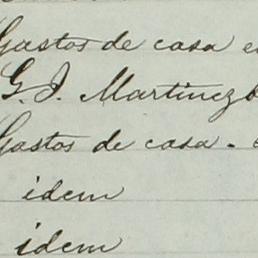 Gastos de casa e
G. J. Martinez
Gastos de casa - 
idem
idem